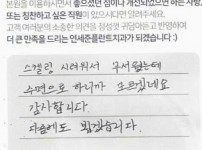 본원을 이용하시면서 좋으셨던 점이나 개선되었으면 하는 사항,
또는 칭찬하고 싶은 직원이 있으시다면 말해주세요.
고객 여러분의 소중한 의견을 정성껏 귀담아듣고 반영하여
더 큰 만족을 드리는 인세준플란트치과가 되겠습니다 :)
스켈링 시려워서 무서웠는데
수면으로 하니까 모르겠네요
감사합니다
다음에도 뵙겠습니다.